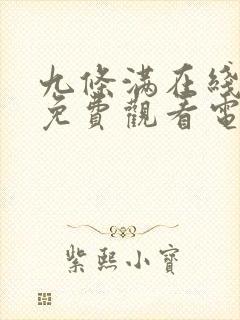 九條滿在綫
免費觀看電
紫熙小寶